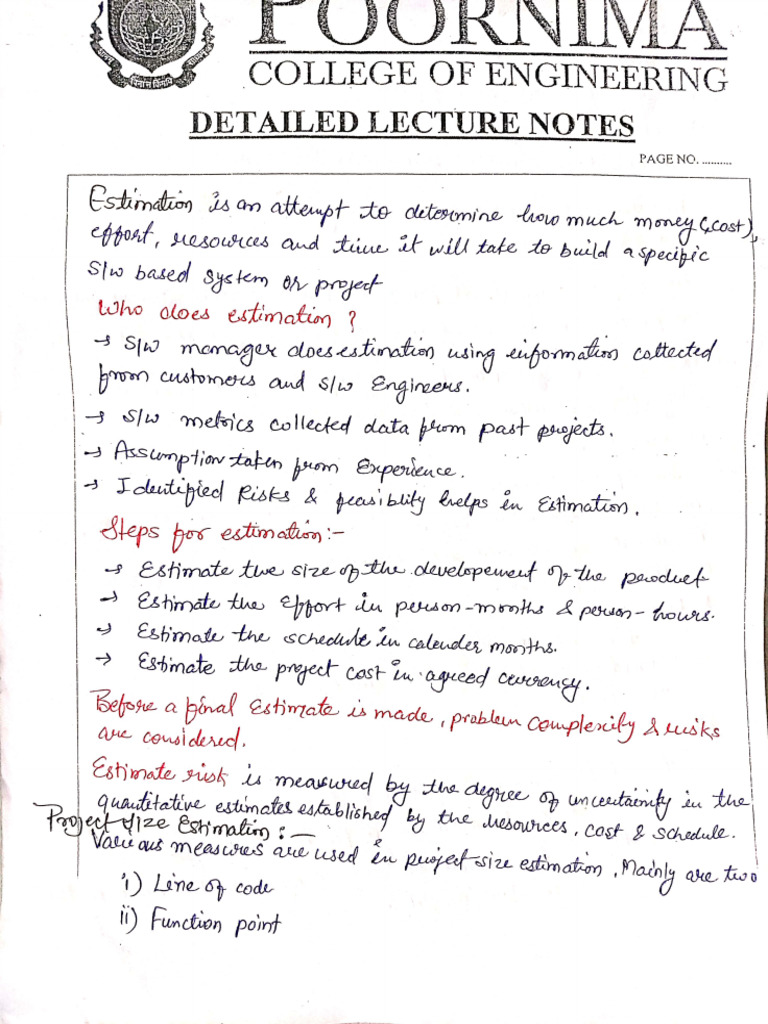 POORNIMA
COLLEGE OF ENGINEERING
DETAILED LECTURE NOTES
PAGE NO. ..........
Estimation is an attempt to determine how much money (cost),
effort, resources and time it will take to build a specific
S/w based system or project
Who does estimation ?
→ S/w manager does estimation using information collected
from customers and S/w Engineers.
→ S/w metrics collected data from past projects.
→ Assumption taken from Experience.
→ Identified Risks & feasiblity helps in Estimation.
Steps for estimation:-
→ Estimate the size of the developement of the product
→ Estimate the Effort in person-months & person-hours.
→ Estimate the schedule in calender months.
→ Estimate the project cost in agreed currency.
Before a final Estimate is made, problem complexity & risks
are considered.
Estimate risk is measured by the degree of uncertainity in the
quantitative estimates established by the resources, cost & schedule.
Project Size Estimation :-
Various measures are used in project size estimation, Mainly are two
i) Line of code
ii) Function point